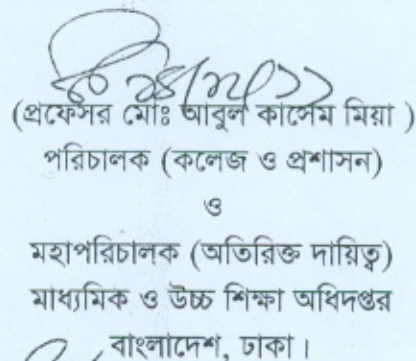 (প্রফেসর মোঃ আবুল কাসেম মিয়া )
পরিচালক (কলেজ ও প্রশাসন)
ও
মহাপরিচালক (অতিরিক্ত দায়িত্ব)
মাধ্যমিক ও উচ্চ শিক্ষা অধিদপ্তর
বাংলাদেশ, ঢাকা।